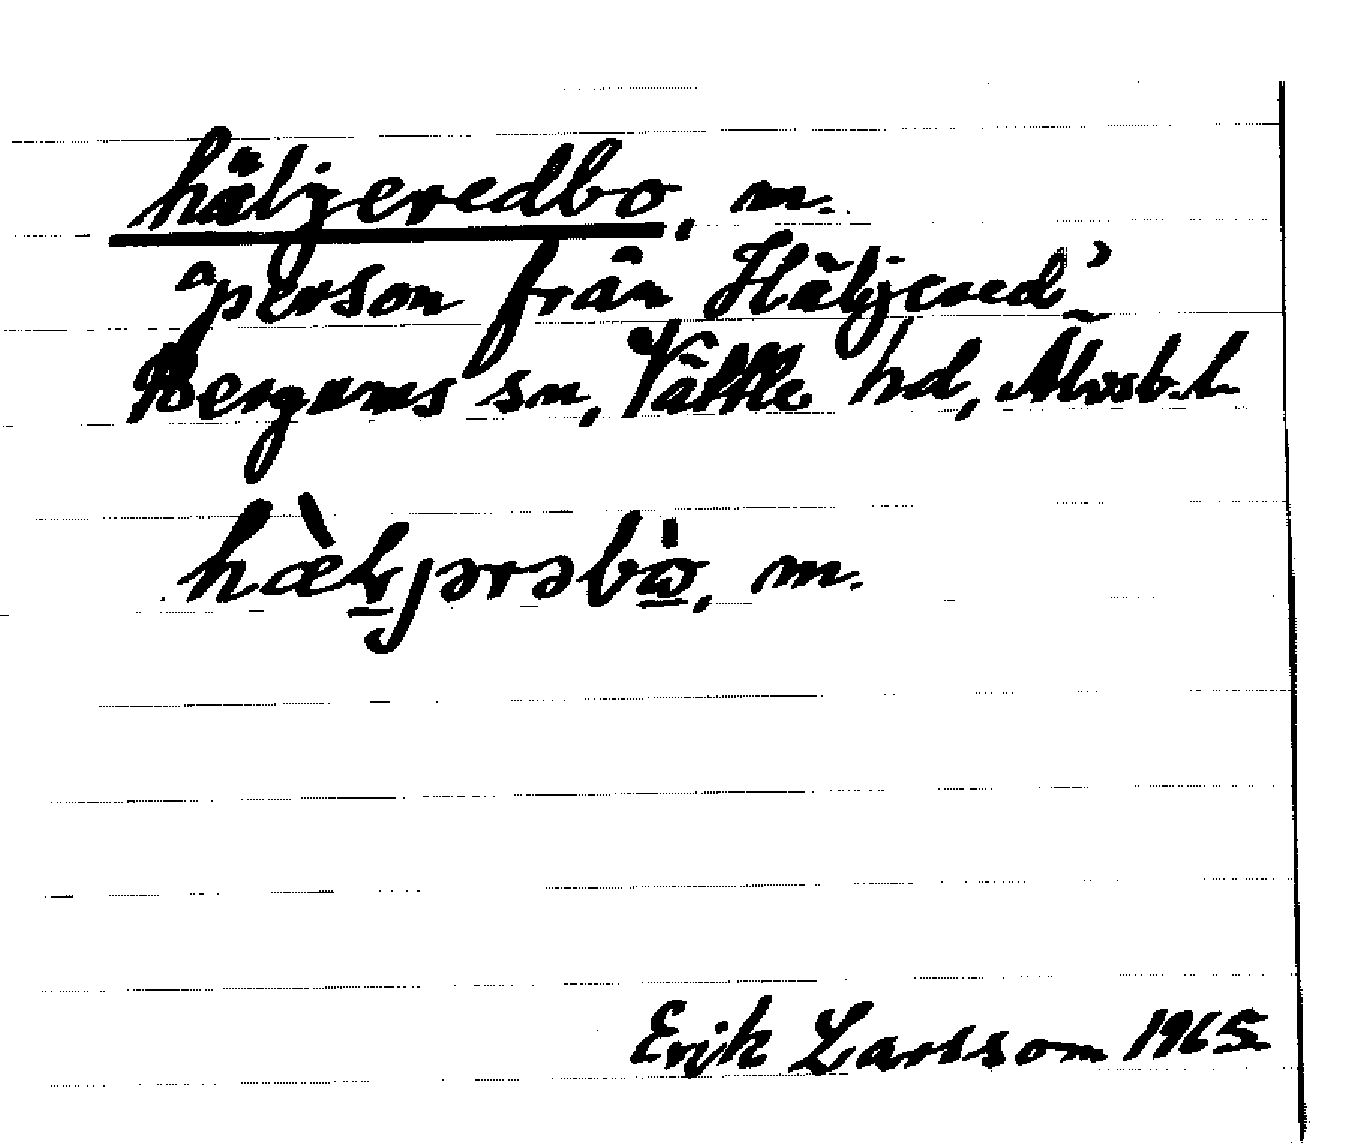 häljeredbo, m.
"person från Häljered"
Bergums sn, Vättle hd, Älvsb. l.
hæ̀ḷjərəbò̱, m.
Erik Larsson 1965